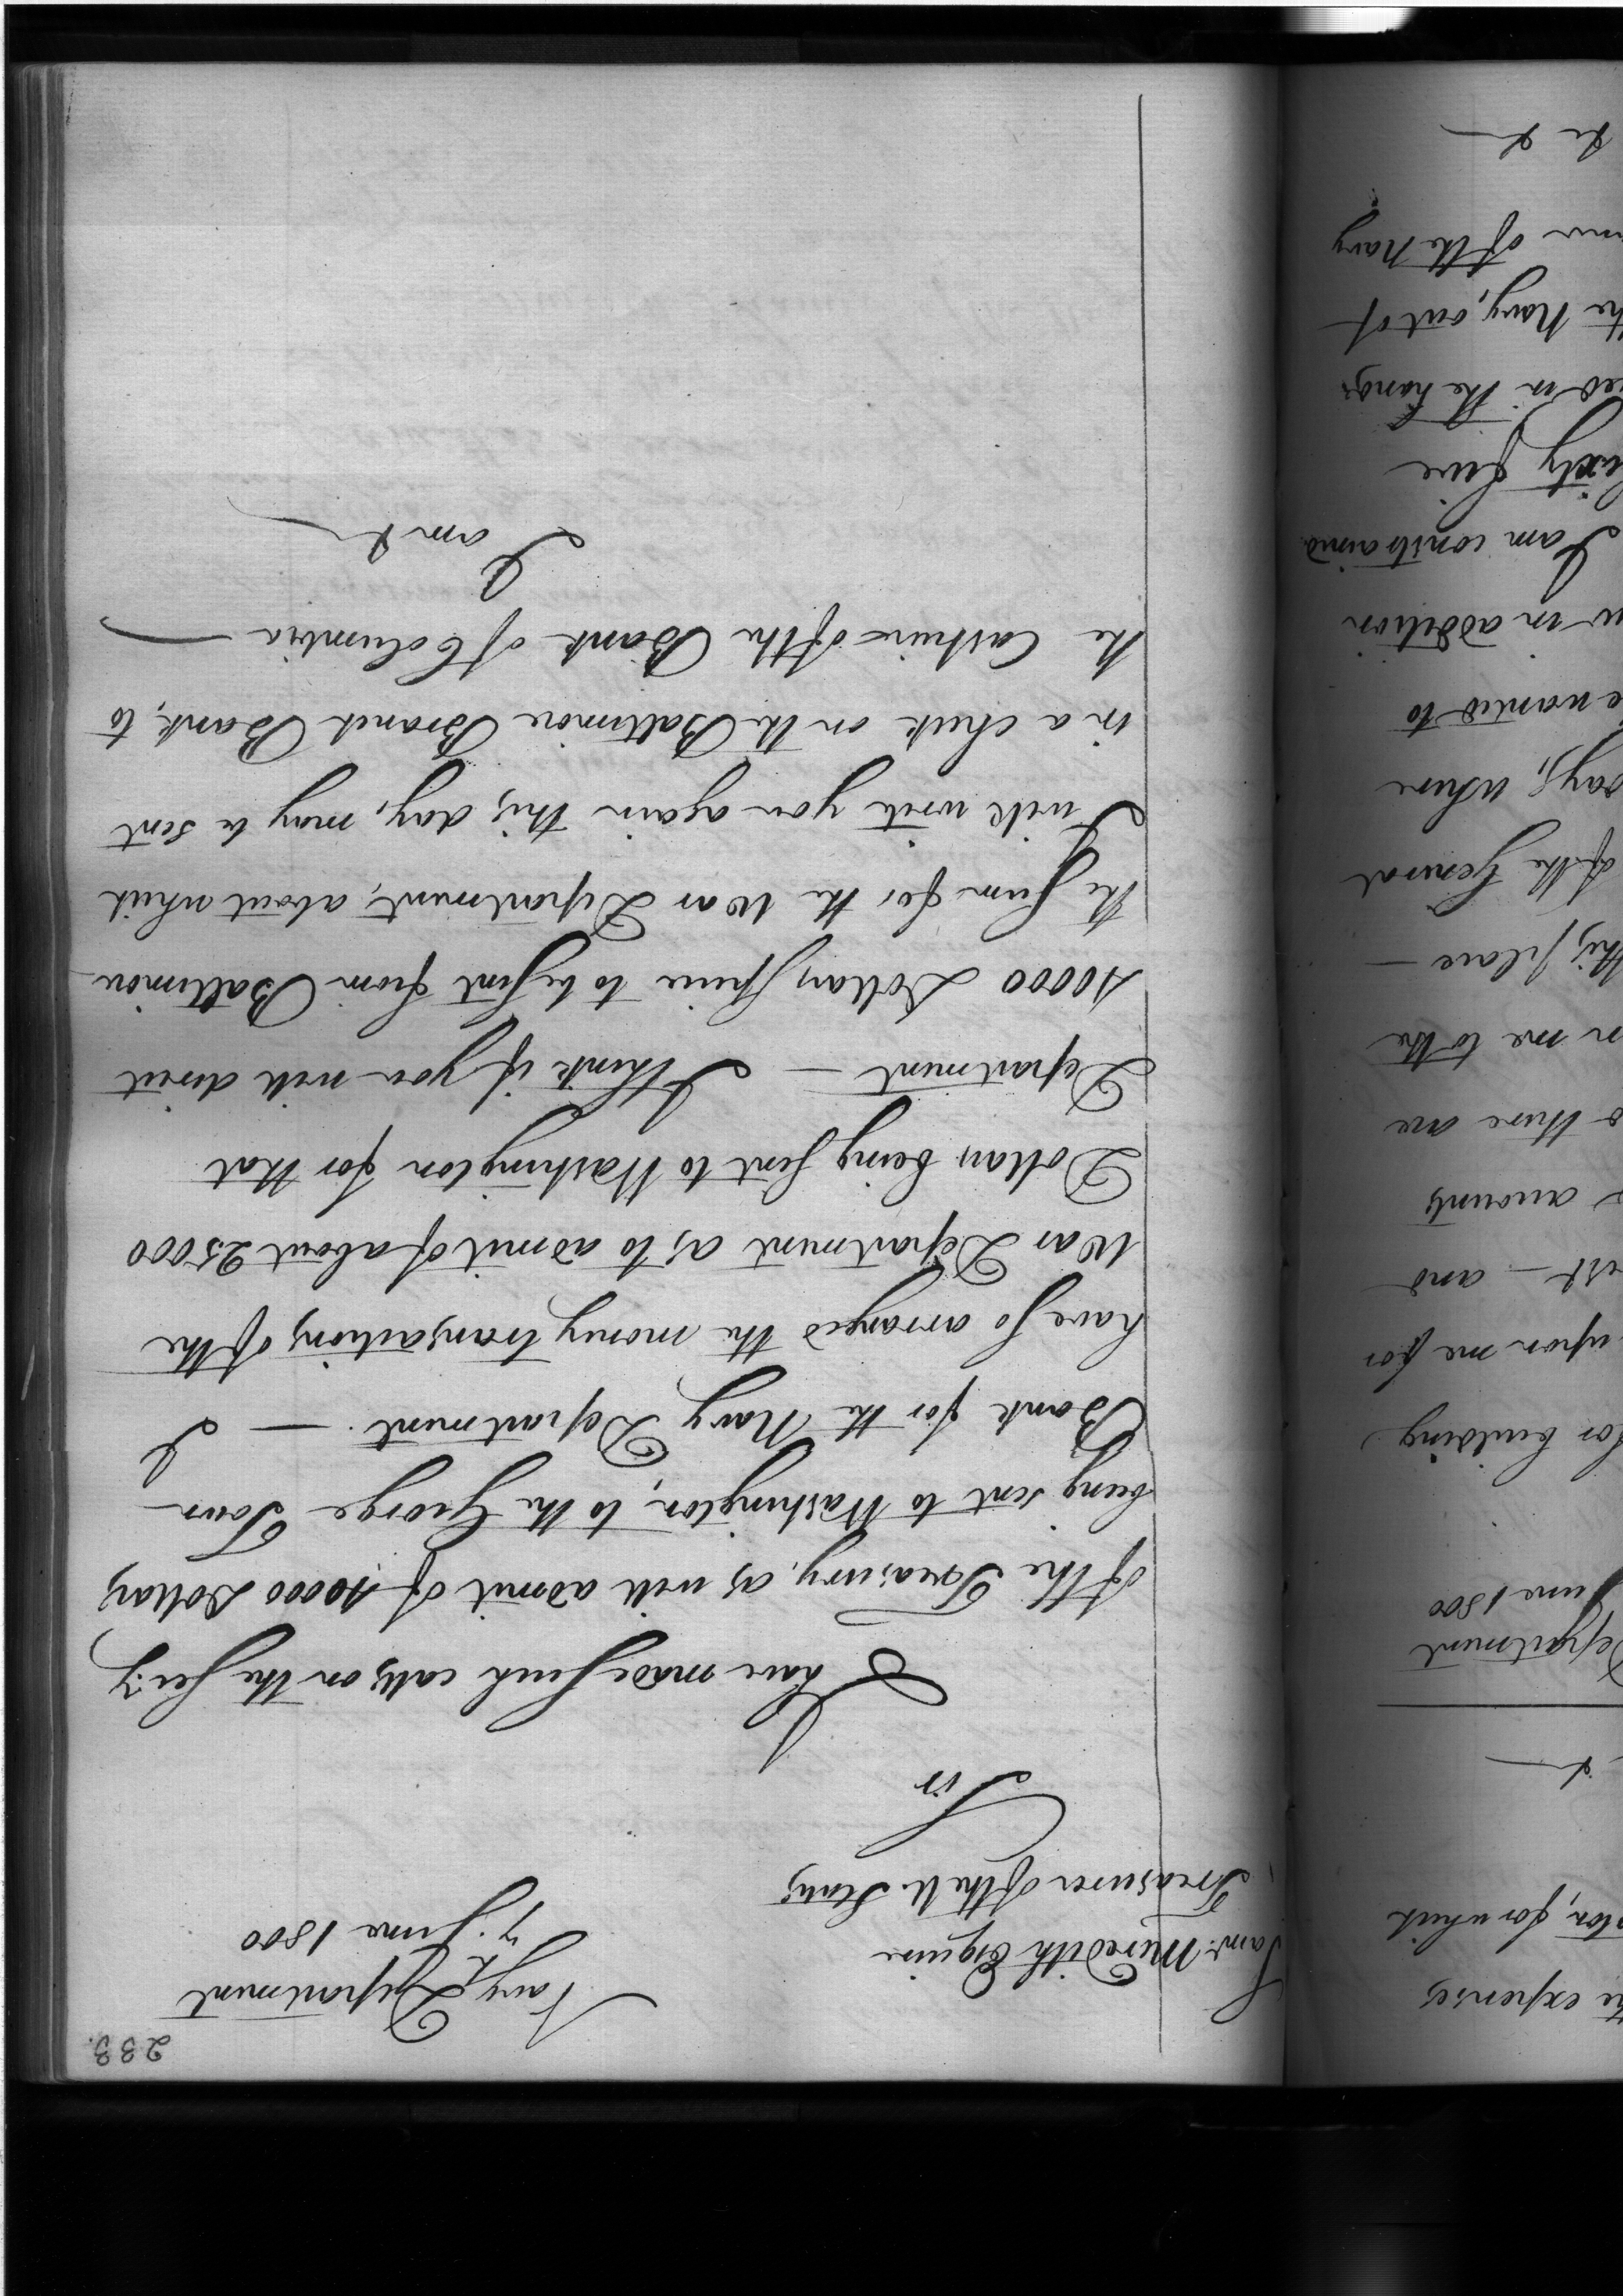 233.
Navy Department
7. June 1800
Saml. Meredith Esquire
Treasurer of the U. States
Sir
I have made such calls on the Secy
of the Treasury, as will admit of 10000 Dollars
being sent to Washington, to the George Town
Bank for the Navy Department. — I
have so arranged the money transactions of the
War Department as to admit of about 25000
Dollars being sent to Washington for that
Department — I think if you will direct
10000 Dollars specie to be sent from Baltimore
the sum for the War Department, about which
I will write you again this day, may be sent
in a check on the Baltimore Branch Bank, to
the Cashier of the Bank of Columbia —
I am &
expenses
for which
Department
June 1800
for building
upon me for
and
accounts
there are
me to the
this place —
of the General
days, where
wanted to
in addition
I am constrained
Sixty five
in the hands
the Navy, out of
of the Navy
&c &